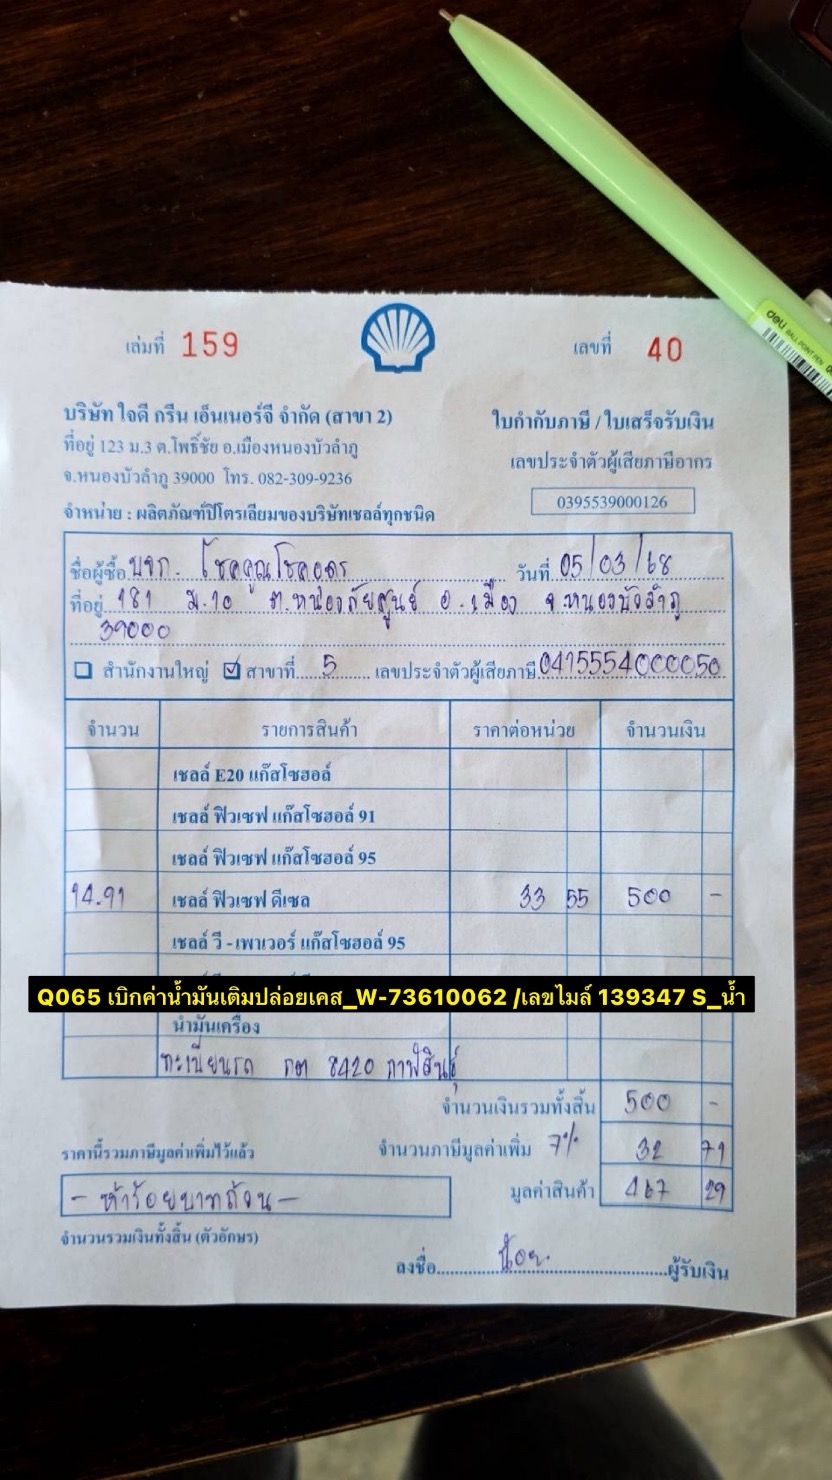 เล่มที่ 159
เลขที่ 40
บริษัท ใจดี กรีน เอ็นเนอร์จี จำกัด (สาขา 2)
ที่อยู่ 123 ม.3 ต.โพธิ์ชัย อ.เมืองหนองบัวลำภู
จ.หนองบัวลำภู 39000 โทร. 082-309-9236
จำหน่าย : ผลิตภัณฑ์ปิโตรเลียมของบริษัทเชลล์ทุกชนิด
ใบกำกับภาษี / ใบเสร็จรับเงิน
เลขประจำตัวผู้เสียภาษีอากร
0395539000126
ชื่อผู้ซื้อ บจก. โชคคูณโชคอุดร วันที่ 05/03/68
ที่อยู่ 181 ม.10 ต.หนองภัยศูนย์ อ.เมือง จ.หนองบัวลำภู
39000
สำนักงานใหญ่ ☑ สาขาที่ 5 เลขประจำตัวผู้เสียภาษี 0415554000050
จำนวน รายการสินค้า ราคาต่อหน่วย จำนวนเงิน
เชลล์ E20 แก๊สโซฮอล์
เชลล์ ฟิวเซฟ แก๊สโซฮอล์ 91
เชลล์ ฟิวเซฟ แก๊สโซฮอล์ 95
14.91 เชลล์ ฟิวเซฟ ดีเซล 33 55 500 -
เชลล์ วี - เพาเวอร์ แก๊สโซฮอล์ 95
Q065 เบิกค่าน้ำมันเติมปล่อยเคส_W-73610062 /เลขไมล์ 139347 S_น้ำ
น้ำมันเครื่อง
ทะเบียนรถ กต 8420 กาฬสินธุ์
จำนวนเงินรวมทั้งสิ้น 500 -
ราคานี้รวมภาษีมูลค่าเพิ่มไว้แล้ว จำนวนภาษีมูลค่าเพิ่ม 7% 32 71
- ห้าร้อยบาทถ้วน - มูลค่าสินค้า 467 29
จำนวนรวมเงินทั้งสิ้น (ตัวอักษร)
ลงชื่อ น้อย ผู้รับเงิน
deli
BALL POINT PEN